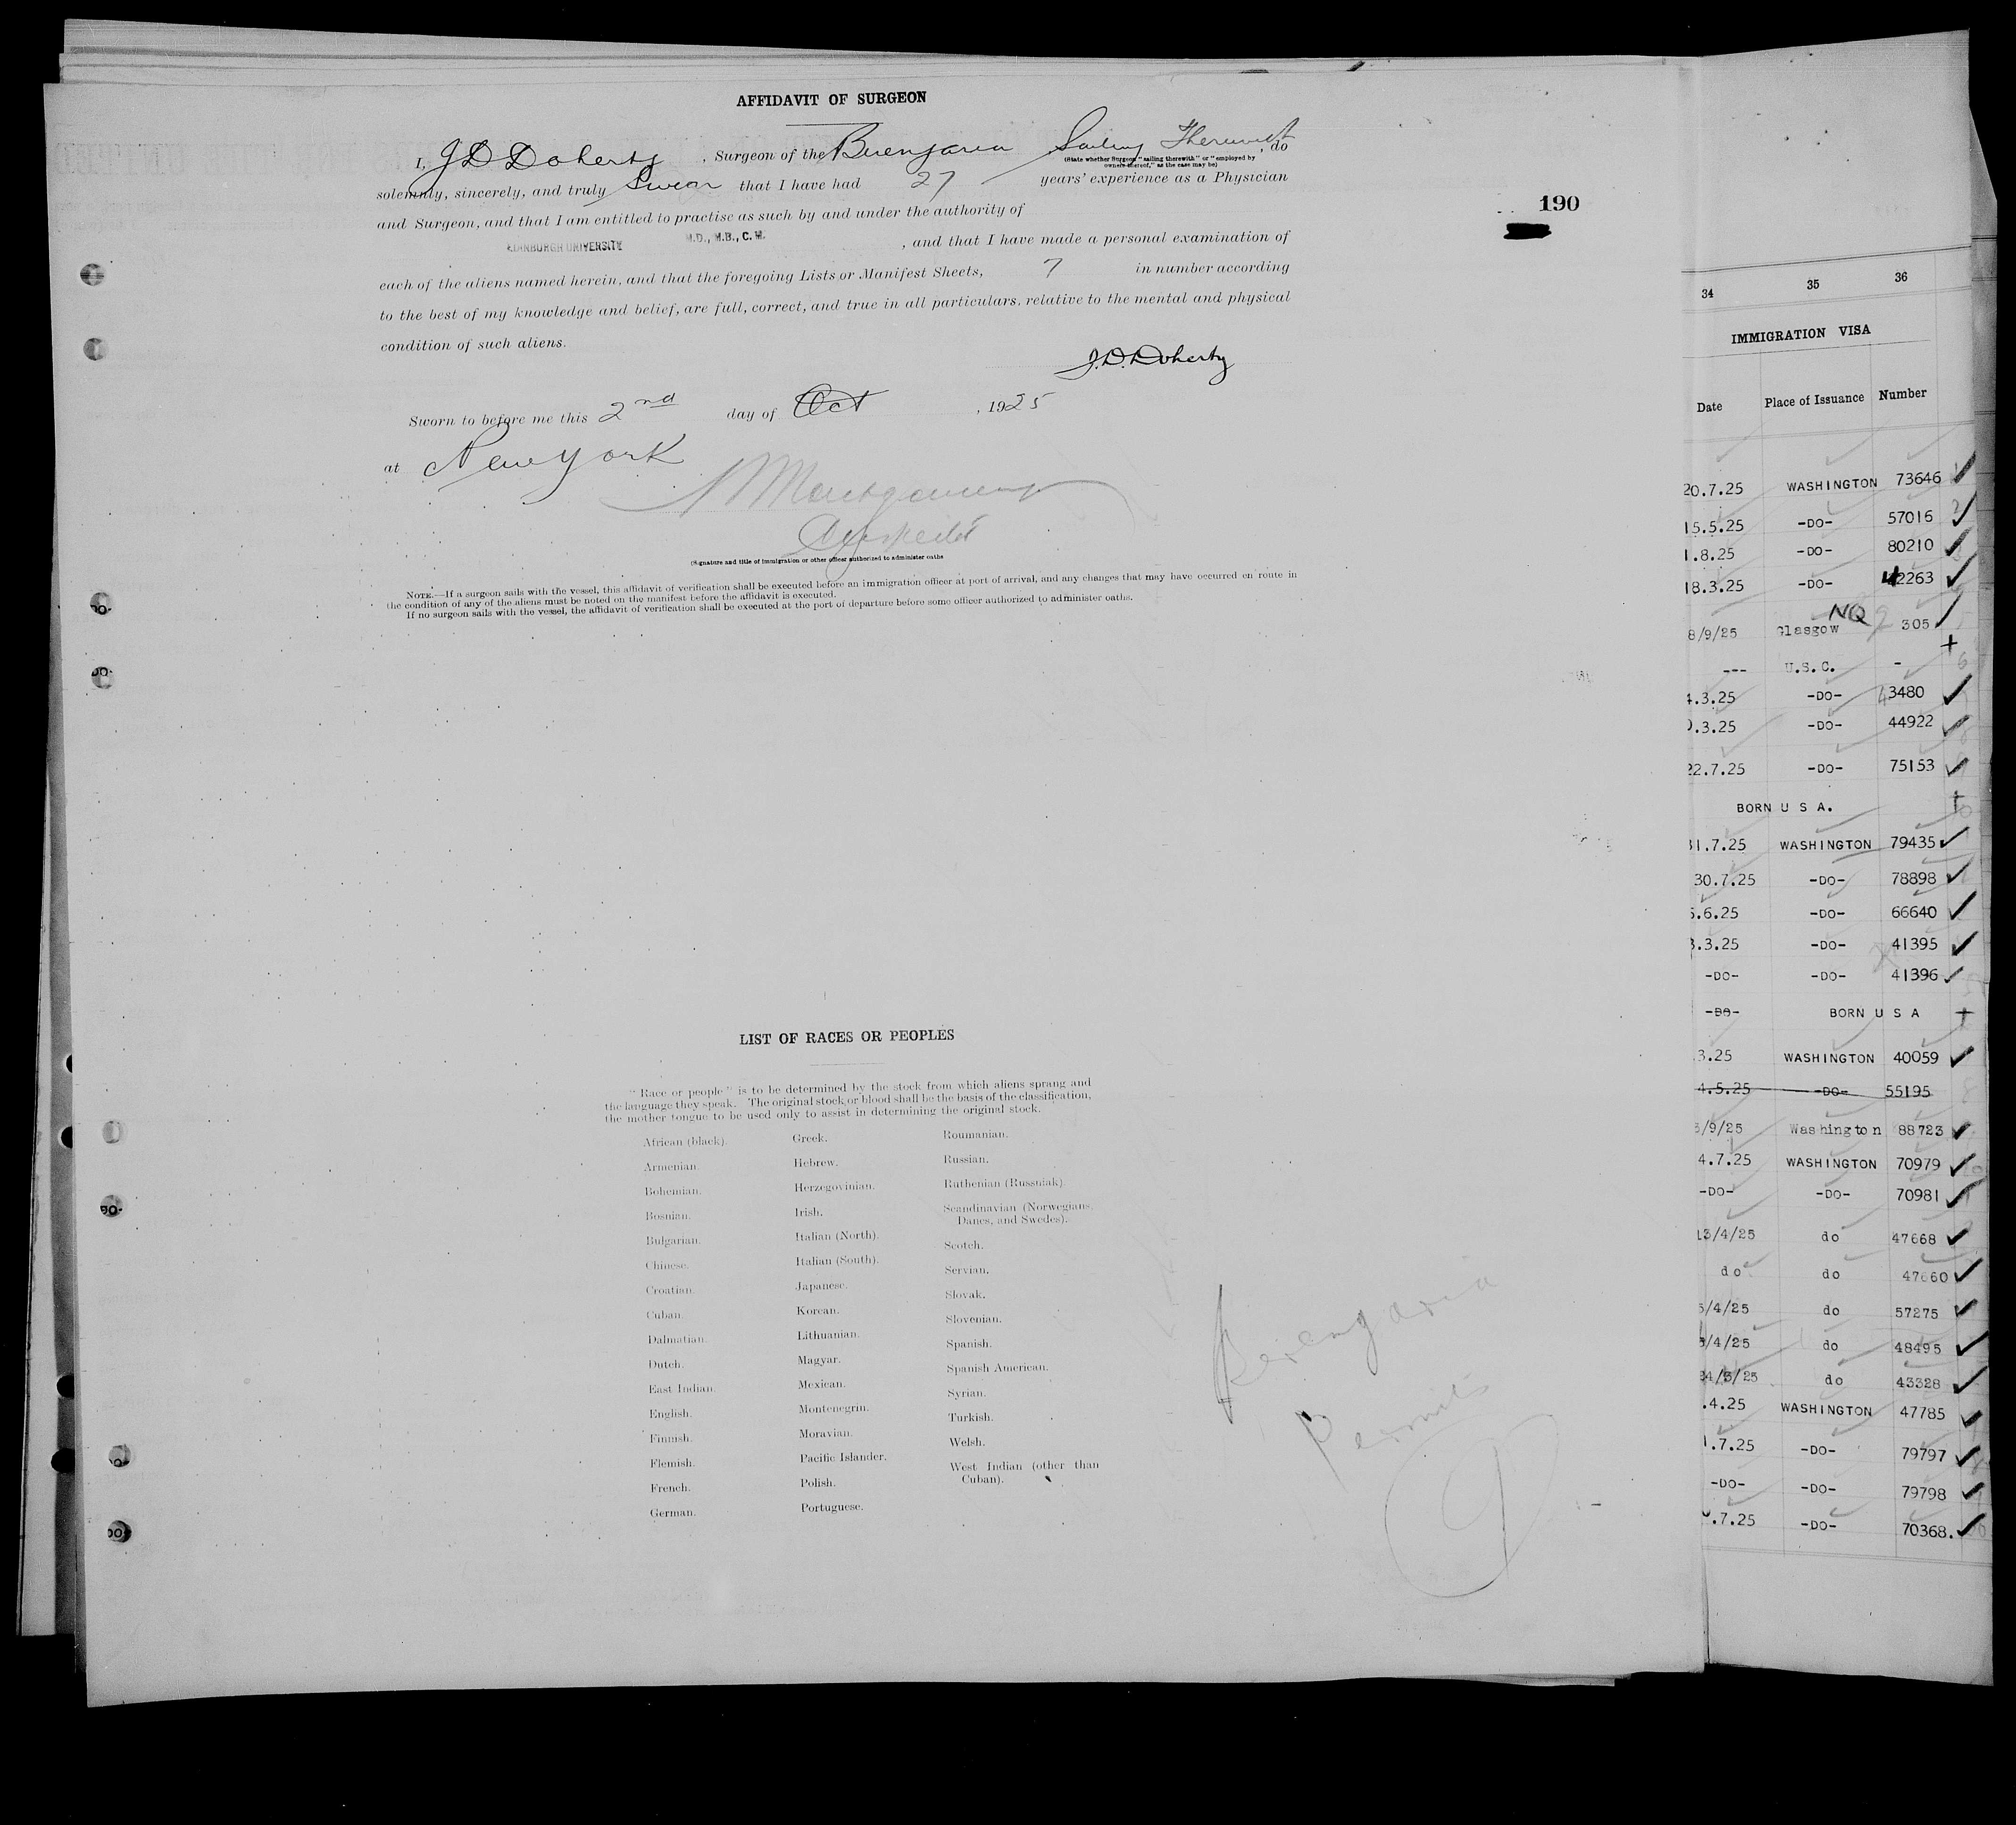 AFFIDAVIT OF SURGEON
I, J D Doherty , Surgeon of the Berengaria Sailing Therewith , do
(State whether Surgeon "sailing therewith" or "employed by
owners thereof," as the case may be)
solemnly, sincerely, and truly Swear that I have had 27 years' experience as a Physician
and Surgeon, and that I am entitled to practise as such by and under the authority of
EDINBURGH UNIVERSITY M.D., M.B., C.M. , and that I have made a personal examination of
each of the aliens named herein, and that the foregoing Lists or Manifest Sheets, 7 in number according
to the best of my knowledge and belief, are full, correct, and true in all particulars, relative to the mental and physical
condition of such aliens.
J.D. Doherty
Sworn to before me this 2nd day of Oct , 1925
at New York
Montgomery
(Signature and title of immigration or other officer authorized to administer oaths
NOTE.—If a surgeon sails with the vessel, this affidavit of verification shall be executed before an immigration officer at port of arrival, and any changes that may have occurred en route in
the condition of any of the aliens must be noted on the manifest before the affidavit is executed.
If no surgeon sails with the vessel, the affidavit of verification shall be executed at the port of departure before some officer authorized to administer oaths.
190
LIST OF RACES OR PEOPLES
"Race or people" is to be determined by the stock from which aliens sprang and
the language they speak. The original stock or blood shall be the basis of the classification,
the mother tongue to be used only to assist in determining the original stock.
African (black).
Armenian.
Bohemian.
Bosnian.
Bulgarian.
Chinese.
Croatian.
Cuban.
Dalmatian.
Dutch.
East Indian.
English.
Finnish.
Flemish.
French.
German.
Greek.
Hebrew.
Herzegovinian.
Irish.
Italian (North).
Italian (South).
Japanese.
Korean.
Lithuanian.
Magyar.
Mexican.
Montenegrin.
Moravian.
Pacific Islander.
Polish.
Portuguese.
Roumanian.
Russian.
Ruthenian (Russniak).
Scandinavian (Norwegians,
Danes, and Swedes).
Scotch.
Servian.
Slovak.
Slovenian.
Spanish.
Spanish American.
Syrian.
Turkish.
Welsh.
West Indian (other than
Cuban).
Berengaria
Permits
34 35 36
IMMIGRATION VISA
Date Place of Issuance Number
20.7.25 WASHINGTON 73646
15.5.25 -DO- 57016
1.8.25 -DO- 80210
18.3.25 -DO- 42263
NQ
8/9/25 Glasgow 305
--- U.S.C. -
4.3.25 -DO- 43480
.3.25 -DO- 44922
22.7.25 -DO- 75153
BORN U S A.
31.7.25 WASHINGTON 79435
30.7.25 -DO- 78898
5.6.25 -DO- 66640
3.3.25 -DO- 41395
-DO- -DO- 41396
-DO- BORN U S A
.3.25 WASHINGTON 40059
4.5.25 -DO- 55195
/9/25 Washington 88723
4.7.25 WASHINGTON 70979
-DO- -DO- 70981
13/4/25 do 47668
do do 47660
5/4/25 do 57275
/4/25 do 48495
24/3/25 do 43328
.4.25 WASHINGTON 47785
1.7.25 -DO- 79797
-DO- -DO- 79798
.7.25 -DO- 70368.